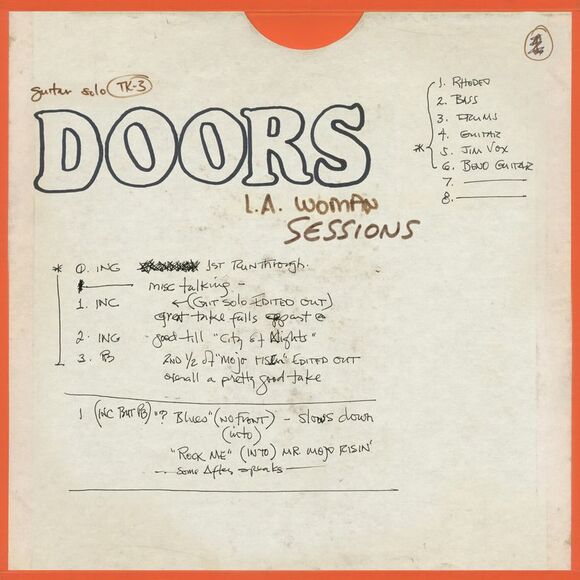 guitar solo TK-3
DOORS
L.A. WOMAN
SESSIONS
1. RHODES
2. BASS
3. DRUMS
4. GUITAR
* 5. JIM VOX
6. BEND GUITAR
7.
8.
* 0. INC 1ST Runthrough.
misc talking -
1. INC ← (GIT SOLO EDITED OUT)
great take falls apart @
2. INC good till "City of Nights"
3. PB 2ND 1/2 of "MOJO RISIN" EDITED OUT
overall a pretty good take
1 (INC BUT PB) "? Blues" (NO FRONT) - slows down
(into)
"ROCK ME" (INTO) MR. MOJO RISIN'
- some After speaks -